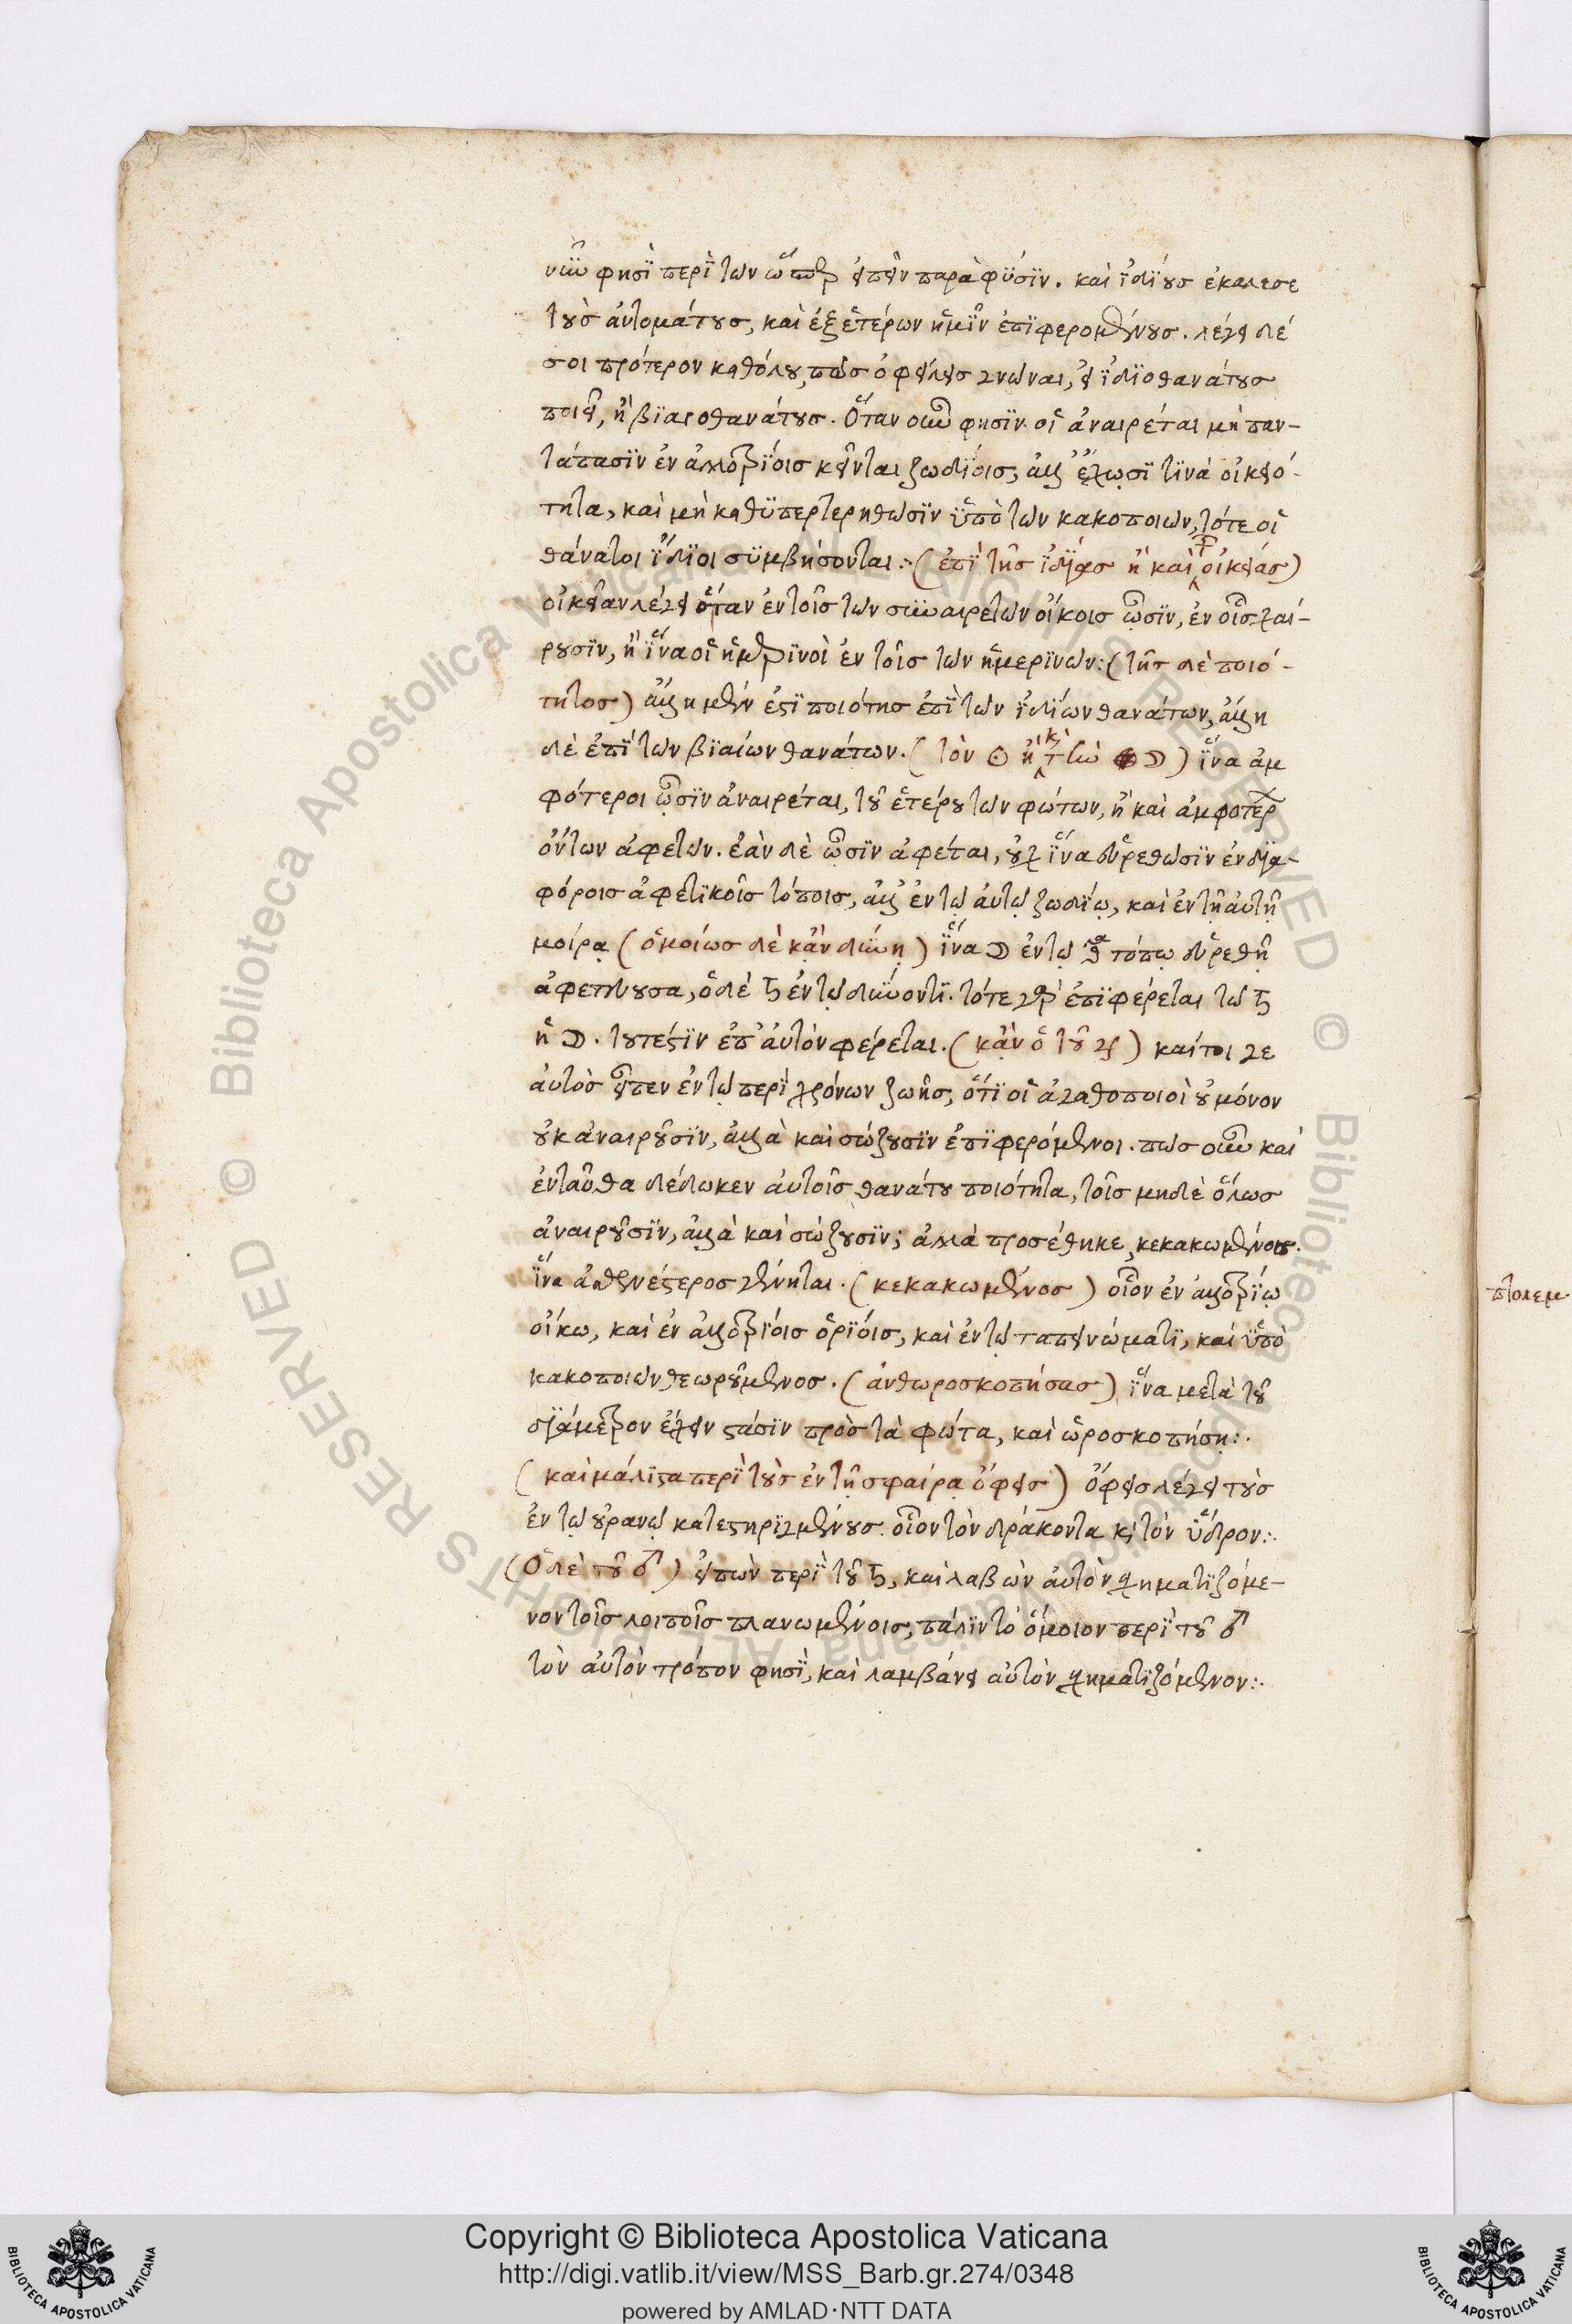 νῦν φησὶ περὶ τῶν ὥσπερ εἰπεῖν παρὰ φύσιν. καὶ ἰδίους ἐκάλεσε
τοὺς αὐτομάτους, καὶ ἐξ ἑτέρων ἡμῖν ἐπιφερομένους. λέγει δέ
σοι πρότερον καθόλου, πῶς ὀφείλεις γνῶναι, εἰ ἰδιοθανάτους
ποιεῖ, ἢ βιαιοθανάτους. Ὅταν οὖν φησιν οἱ ἀναιρέται μὴ παν-
τάπασιν ἐν ἀλλοτρίοις κεῖνται ζωδίοις, ἀλλ' ἔχωσί τινα οἰκειό-
τητα, καὶ μὴ καθυπερτερηθῶσιν ὑπὸ τῶν κακοποιῶν, τότε οἱ
θάνατοι ἴδιοι συμβήσονται:· (ἐπὶ τῆς ἰδίας ἢ καὶ τῆς οἰκείας)
οἰκείαν λέγει ὅταν ἐν τοῖς τῶν συναιρετῶν οἴκοις ὦσιν, ἐν οἷς χαί-
ρουσιν, ἢ ἵνα οἱ ἡμερινοὶ ἐν τοῖς τῶν ἡμερινῶν: (τῆς δὲ ποιό-
τητος) ἄλλη μέν ἐστι ποιότης ἐπὶ τῶν ἰδίων θανάτων, ἄλλη
δὲ ἐπὶ τῶν βιαίων θανάτων. (τὸν ☉ ἢ κ τ τὴν ☽) ἵνα ἀμ
φότεροι ὦσιν ἀναιρέται, τοῦ ἑτέρου τῶν φώτων, ἢ καὶ ἀμφοτέρων
ὄντων ἀφετῶν. ἐὰν δὲ ὦσιν ἀφέται, οὐχ ἵνα εὑρεθῶσιν ἐν δια-
φόροις ἀφετικοῖς τόποις, ἀλλ' ἐν τῷ αὐτῷ ζωδίῳ, καὶ ἐν τῇ αὐτῇ
μοίρᾳ (ὁμοίως δὲ κἂν δύνῃ) ἵνα ☽ ἐν τῷ θ τόπῳ εὑρεθῇ
ἀφετεύουσα, ὁ δὲ ♄ ἐν τῷ δύνοντι. τότε γὰρ ἐπιφέρεται τῷ ♄
ἡ ☽. τουτέστιν ἐπ' αὐτὸν φέρεται. (κἂν ὁ τοῦ ♃) καίτοι γε
αὐτὸς εἶπεν ἐν τῷ περὶ χρόνων ζωῆς, ὅτι οἱ ἀγαθοποιοὶ οὐ μόνον
οὐκ ἀναιροῦσιν, ἀλλὰ καὶ σώζουσιν ἐπιφερόμενοι. πῶς οὖν καὶ
ἐνταῦθα δέδωκεν αὐτοῖς θανάτου ποιότητα, τοῖς μηδὲ ὅλως
ἀναιροῦσιν, ἀλλὰ καὶ σώζουσιν; ἀλλὰ προσέθηκε, κεκακωμένος.
ἵνα ἀσθενέστερος γένηται. (κεκακωμένος) οἷον ἐν ἀλλοτρίῳ
οἴκω, καὶ ἐν ἀλλοτρίοις ὁρίοις, καὶ ἐν τῷ ταπεινώματι, καὶ ὑπὸ
κακοποιῶν θεωρούμενος. (ἀνθωροσκοπήσας) ἵνα μετὰ τοῦ
διάμετρον ἔχειν στάσιν πρὸς τὰ φῶτα, καὶ ὡροσκοπήσῃ:·
(καὶ μάλιστα περὶ τοὺς ἐν τῇ σφαίρᾳ ὄφεις) ὄφεις λέγει τοὺς
ἐν τῷ οὐρανῷ κατεστηριγμένους. οἷον τὸν δράκοντα κ τὸν ὕδρον:·
(Ὁ δὲ τοῦ ♂) εἰπὼν περὶ τοῦ ♄, καὶ λαβὼν αὐτὸν σχηματιζόμε-
νον τοῖς λοιποῖς πλανωμένοις, πάλιν τὸ ὅμοιον περὶ τοῦ ♂
τὸν αὐτὸν τρόπον φησὶ, καὶ λαμβάνει αὐτὸν σχηματιζόμενον:·
πτολεμ
Copyright © Biblioteca Apostolica Vaticana
http://digi.vatlib.it/view/MSS_Barb.gr.274/0348
powered by AMLAD·NTT DATA